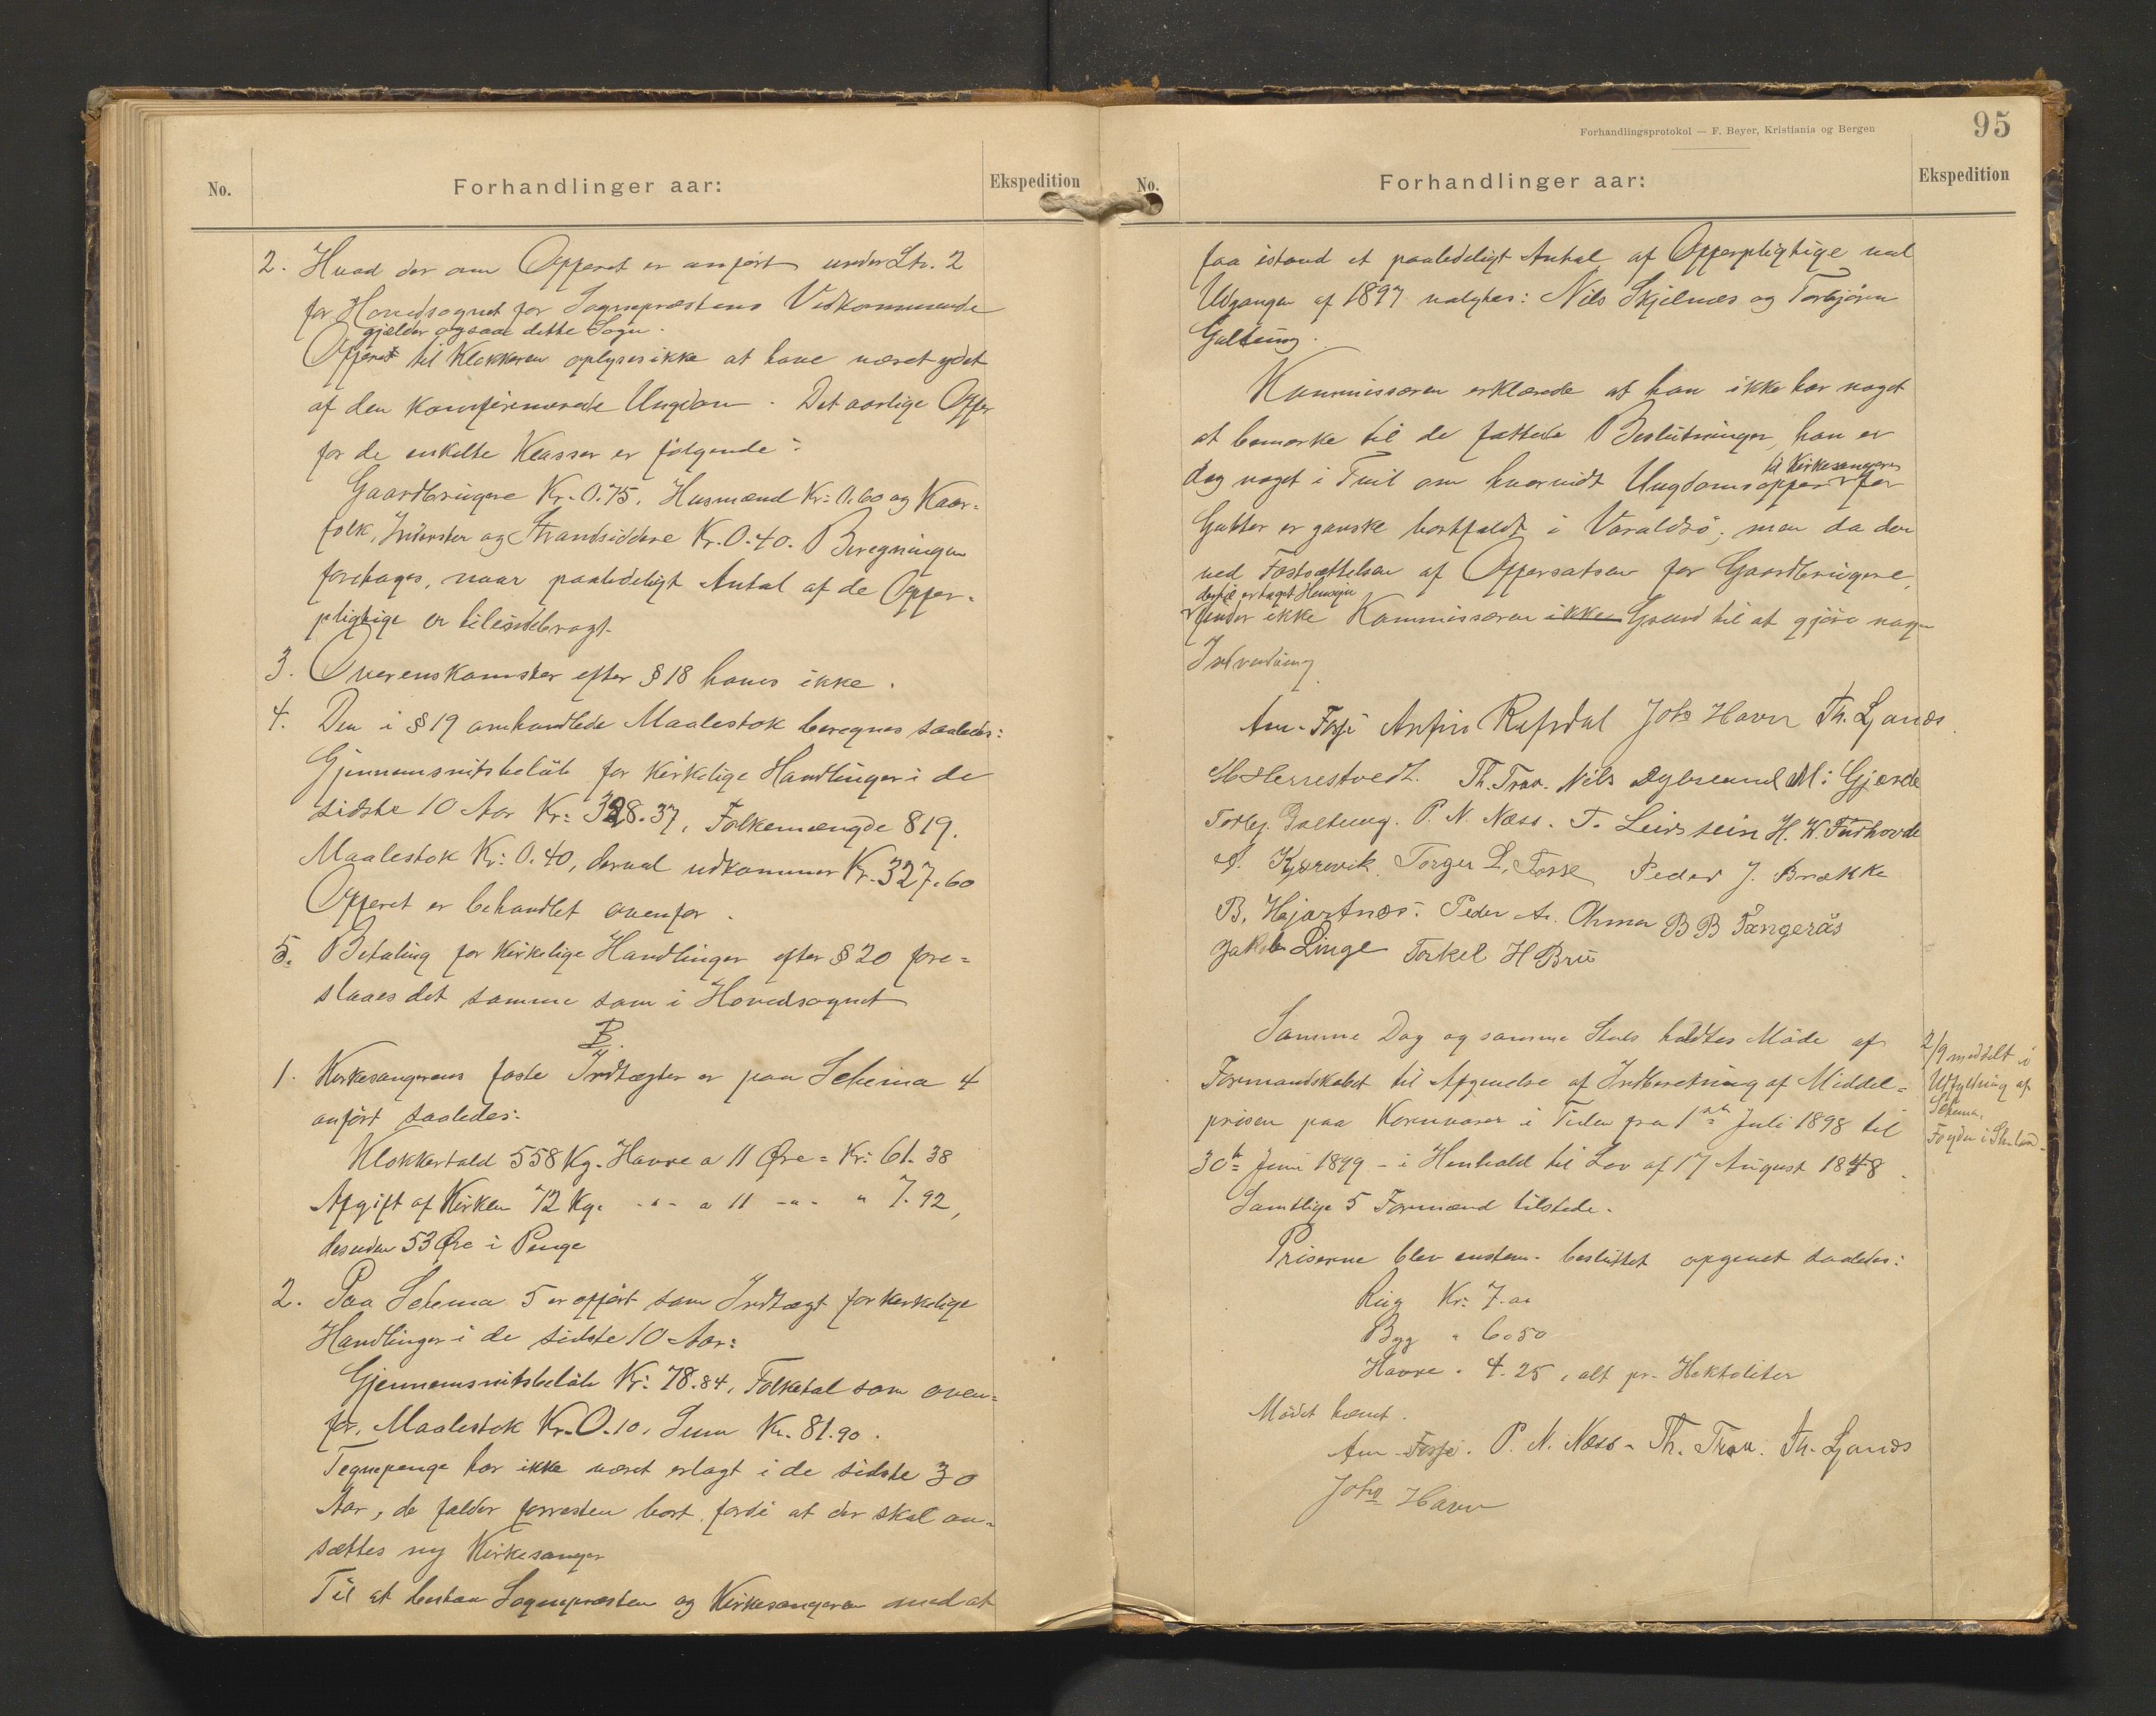 No.
Forhandlinger aar:
Ekspedition
2. Hvad der om Offeret er anført under Litr. 2
for Hovedsognet for Sognepræstens Vedkommende
gjælder ogsaa dette Sogn.
Offeret til Klokkeren oplyses ikke at have været ydet
af den konfirmerede Ungdom. Det aarlige Offer
for de enkelte Klasser er følgende:
Gaardbrugere Kr. 0.75, Husmænd Kr: 0.60 og Kaar-
folk, Inderster og Strandsiddere Kr. 0.40. Beregningen
foretages, naar paalideligt Antal af de Offer-
pligtige er tilveiebragt.
3. Overenskomster efter § 18 haves ikke.
4. Den i § 19 omhandlede Maalestok beregnes saaledes:
Gjennemsnitsbeløb for kirkelige Handlinger i de
sidste 10 Aar Kr: 328.37, Folkemængde 819.
Maalestok Kr: 0.40, derved udkommer Kr. 327.60
Offeret er behandlet ovenfor.
5. Betaling for kirkelige Handlinger efter § 20 fore-
slaaes det samme som i Hovedsognet
B.
1. Kirkesangerens faste Indtægter er paa Schema 4
anført saaledes:
Klokkertold 558 Kg. Havre a 11 Øre = Kr: 61.38
Afgift af Kirken 72 Kg. -"- a 11 -"- " 7.92,
desuden 53 Øre i Penge
2. Paa Schema 5 er opført som Indtægt for kirkelige
Handlinger i de sidste 10 Aar:
Gjennemsnitsbeløb Kr: 78.84, Folketal som oven-
for, Maalestok Kr. 0.10, Sum Kr. 81.90.
Tegnepenge har ikke været erlagt i de sidste 30
Aar, de falder forresten bort fordi at der skal an-
sættes ny Kirkesanger
Til at bistaa Sognepræsten og Kirkesangeren med at
Forhandlingsprotokol — F. Beyer, Kristiania og Bergen
95
No.
Forhandlinger aar:
Ekspedition
faa istand et paalideligt Antal af Offerpligtige ved
Udgangen af 1897 valgtes: Nils Skjelnes og Torbjørn
Galtung.
Kommissæren erklærede at han ikke har noget
at bemærke til de fattede Beslutninger, han er
til Kirkesangeren
dog noget i Tvil om hvorvidt Ungdomsoffer for
Gutter er ganske bortfaldt i Varaldsø; men da der
ved Fastsættelsen af Offersatsen for Gaardbrugere,
dertil er taget Hensyn
finder ikke Kommissæren ikke Grund til at gjøre nogen
Indvending
Am. Fosse Anfin Refsdal Johs Havn Th. Ljones
Herrestvedt. Th. Traa. Nils Dybsland M: Gjerde
Torbj. Galtung. P. N. Næss. T. Leirstein H. W. Furhovde
Kjærevik. Torger L. Fosse Peder J. Brække
B. Hjartnes. Peder A. Ohma B B Tangerås
Jakob Linge Torkel H Bru
Samme Dag og samme Sted holdtes Møde af
Formandskabet til Afgivelse af Indberetning af Middel-
prisen paa Kornvarer i Tiden fra 1ste Juli 1898 til
30te Juni 1899 - i Henhold til Lov af 17 August 1848.
2/9 meddelt i
Udfyldning af
Schema.
Fogden i
Samtlige 5 Formænd tilstede.
Priserne blev enstem. besluttet opgivet saaledes:
Rug Kr: 7.00
Byg " 6.50
Havre " 4.25, alt pr. Hektoliter
Mødet hævet.
Am. Fosse. P. N. Næss. Th. Traa. Th. Ljones
Johs Havn